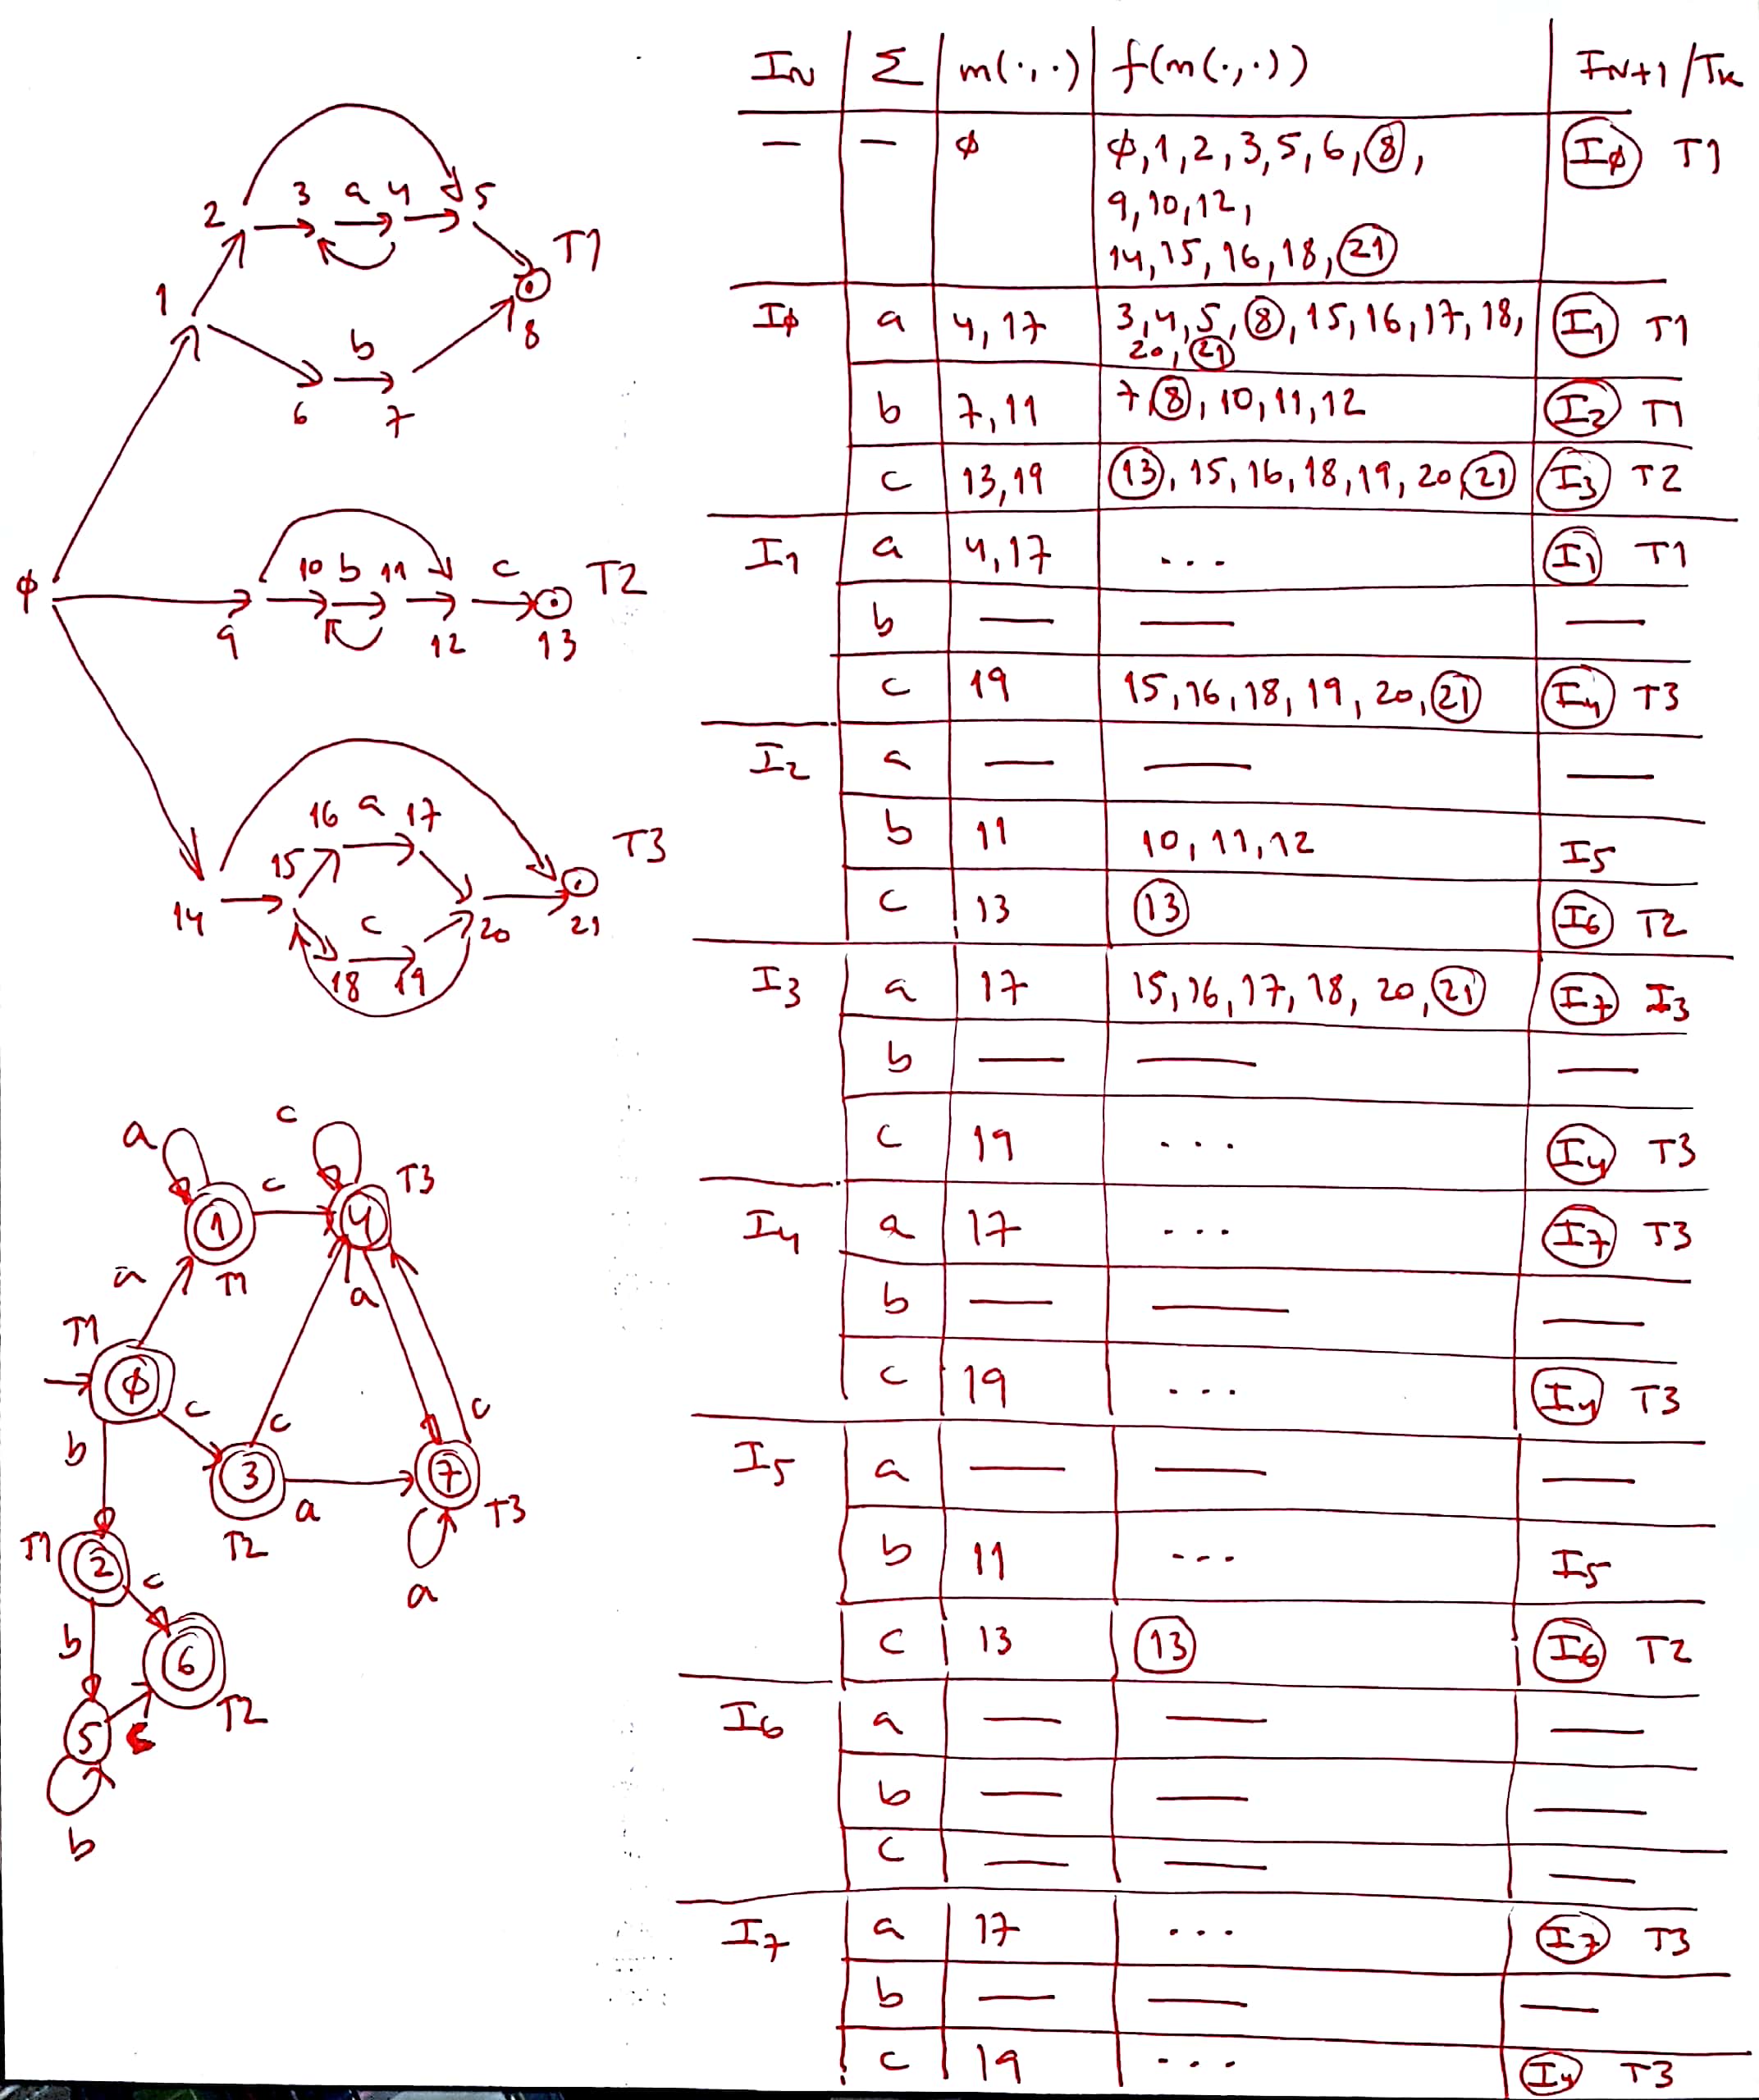 2 3 a 4 5
T1
1
8
b
6 7
10 b 11 c T2
φ
9 12 13
16 a 17
15 T3
14
c 20 21
18 19
a c
c T3
1 4
a T1 a
T1
φ
c c c
b
3 7
a T3
T1 T2
2 c a
b
6
T2
5 c
b
IN Σ m(·,·) f(m(·,·)) IN+1/Tk
— — φ φ,1,2,3,5,6,8, Iφ T1
9,10,12,
14,15,16,18,21
Iφ a 4,17 3,4,5,8,15,16,17,18, I1 T1
20,21
b 7,11 7,8,10,11,12 I2 T1
c 13,19 13,15,16,18,19,20,21 I3 T2
I1 a 4,17 ... I1 T1
b — — —
c 19 15,16,18,19,20,21 I4 T3
I2 a — — —
b 11 10,11,12 I5
c 13 13 I6 T2
I3 a 17 15,16,17,18,20,21 I7 I3
b — — —
c 19 ... I4 T3
I4 a 17 ... I7 T3
b — — —
c 19 ... I4 T3
I5 a — — —
b 11 ... I5
c 13 13 I6 T2
I6 a — — —
b — — —
c — — —
I7 a 17 ... I7 T3
b — — —
c 19 ... I4 T3